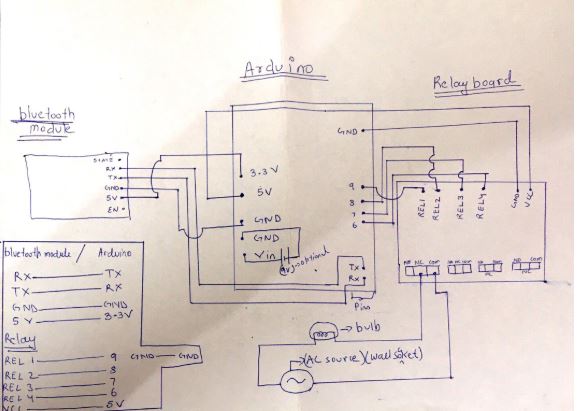 Arduino
Relay board
bluetooth
module
STATE
RX
TX
GND
5V
EN
GND
3.3V
5V
GND
GND
Vin
9V
optional
9
8
7
6
TX
RX
Pins
REL1
REL2
REL3
REL4
GND
VCC
NO NC COM
NO NC COM
NO COM
NC
NO COM
NC
bulb
(AC source)(wall socket)
bluetooth module / Arduino
RX TX
TX RX
GND GND
5V 3.3V
Relay
REL 1 9 GND GND
REL 2 8
REL 3 7
REL 4 6
VCC 5V